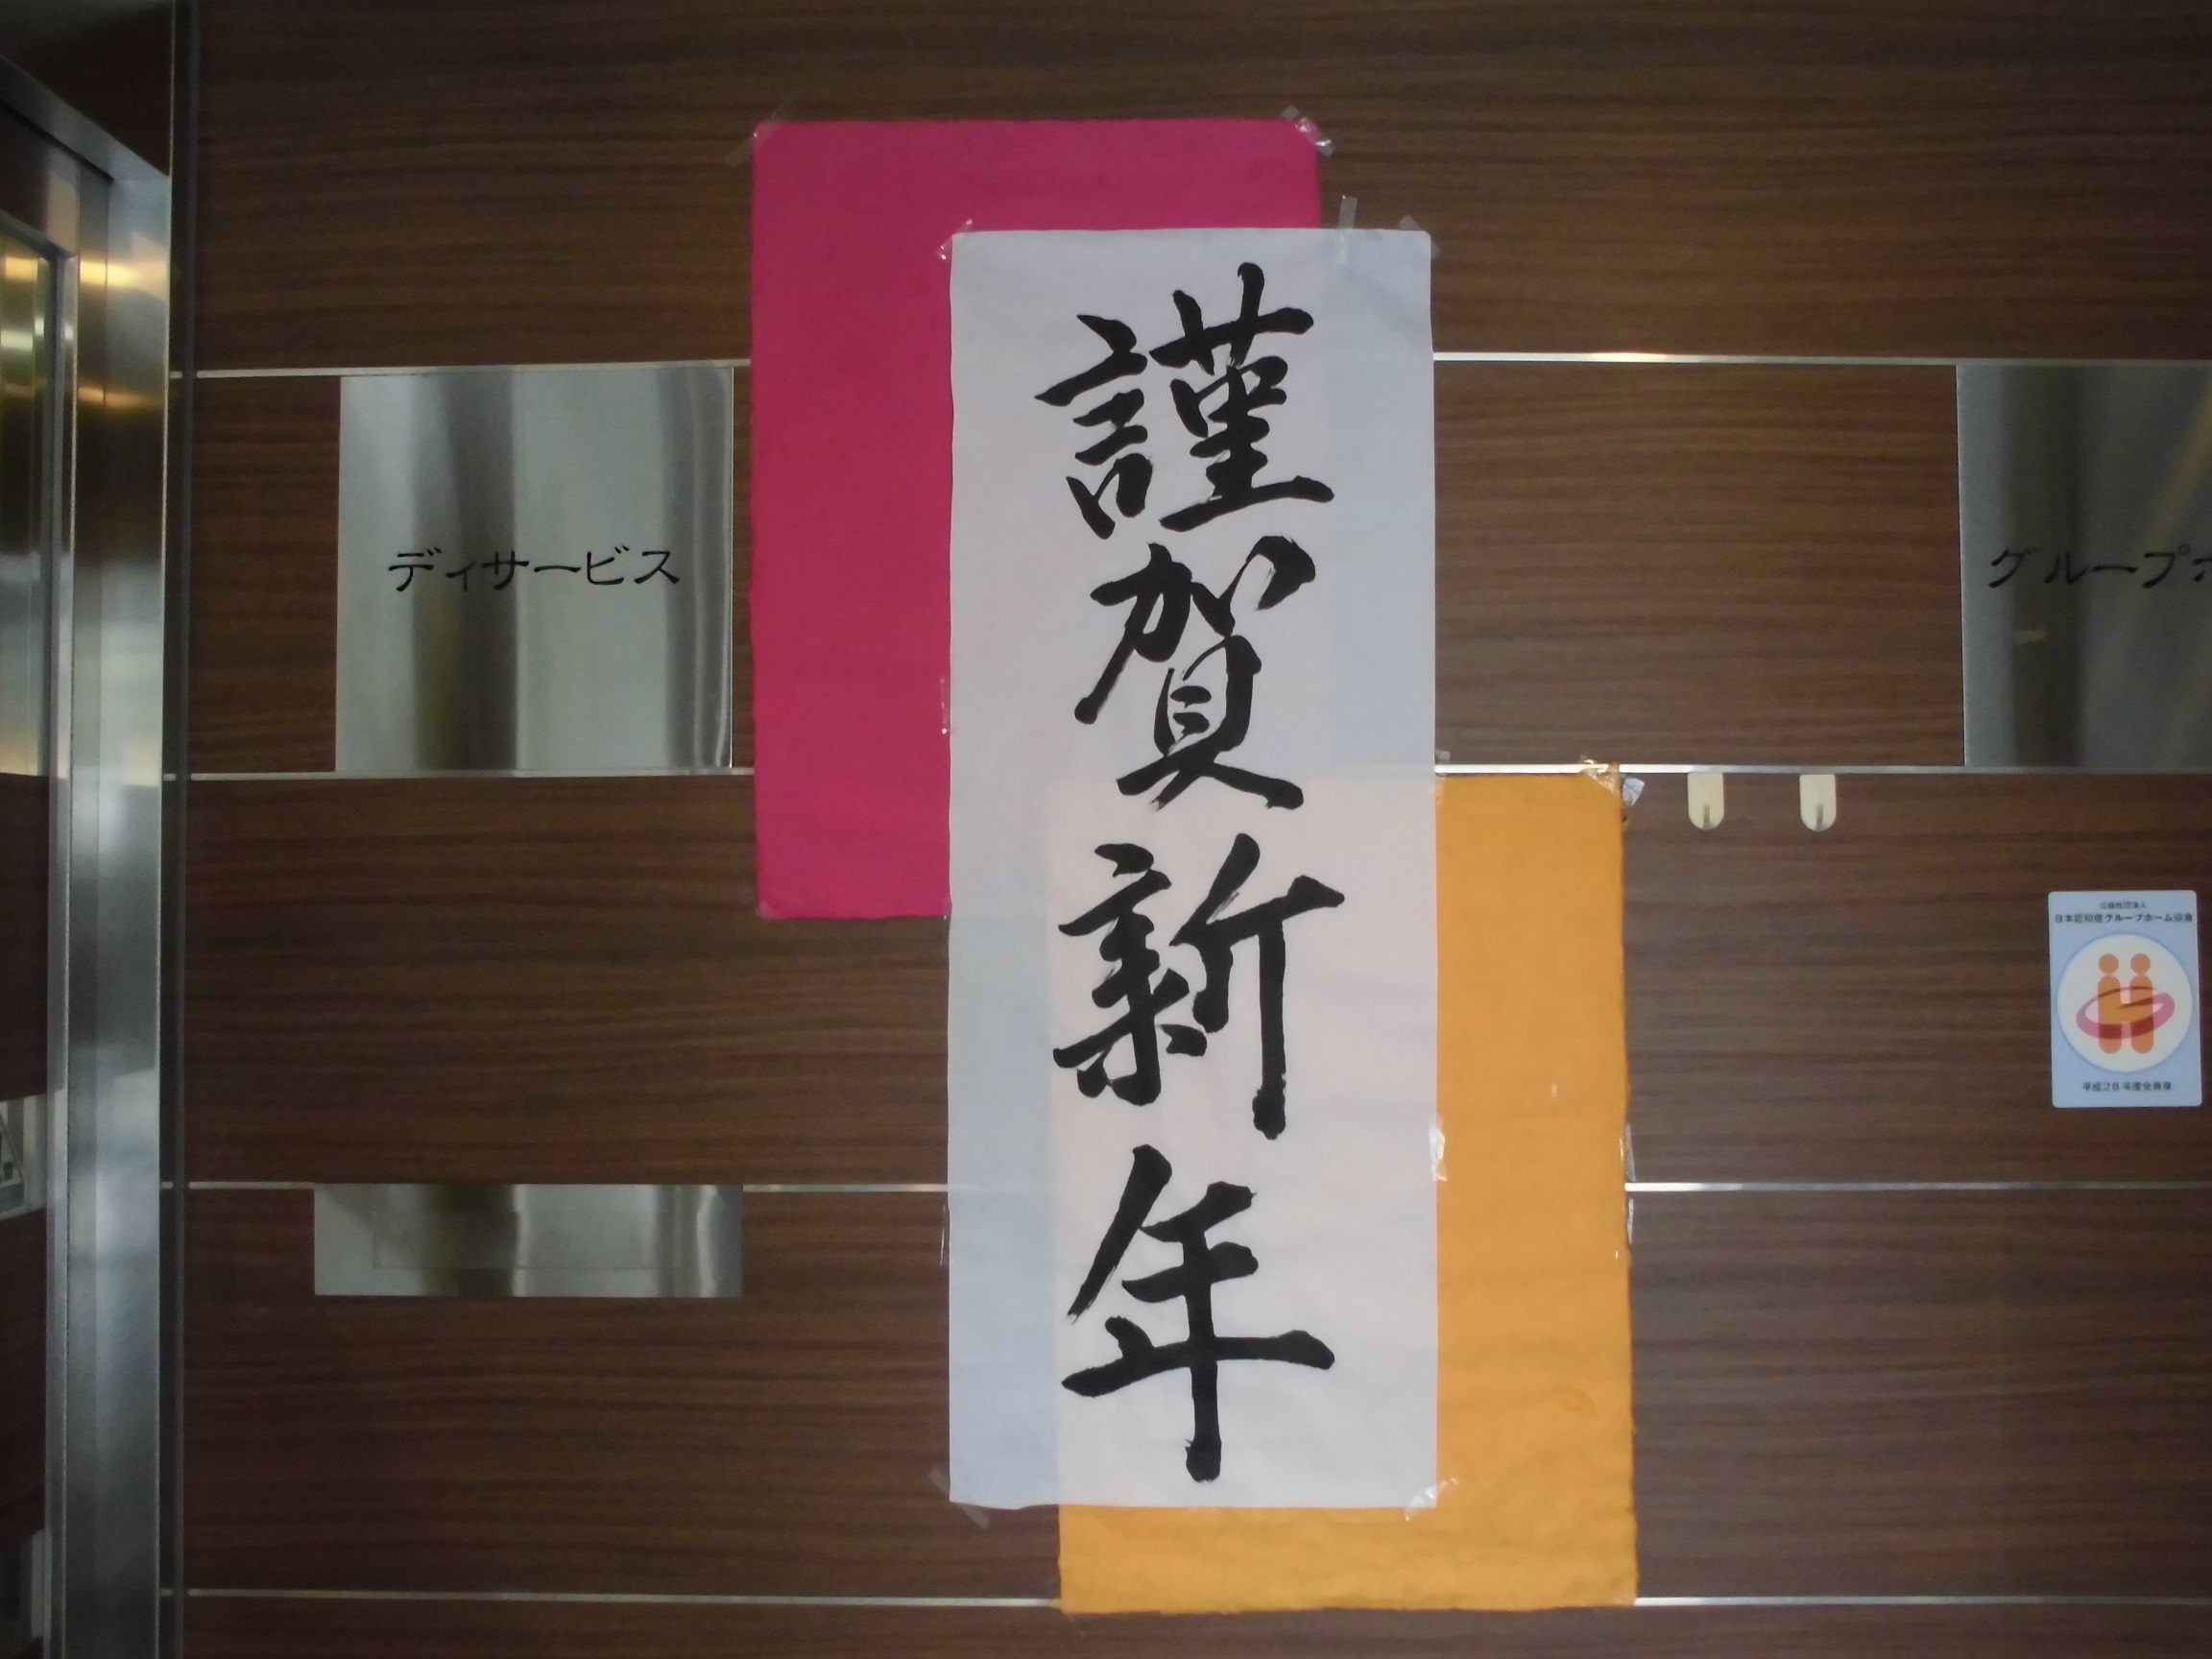 謹賀新年
ディサービス
グループホ
公益社団法人
日本認知症グループホーム協会
平成28年度会員章